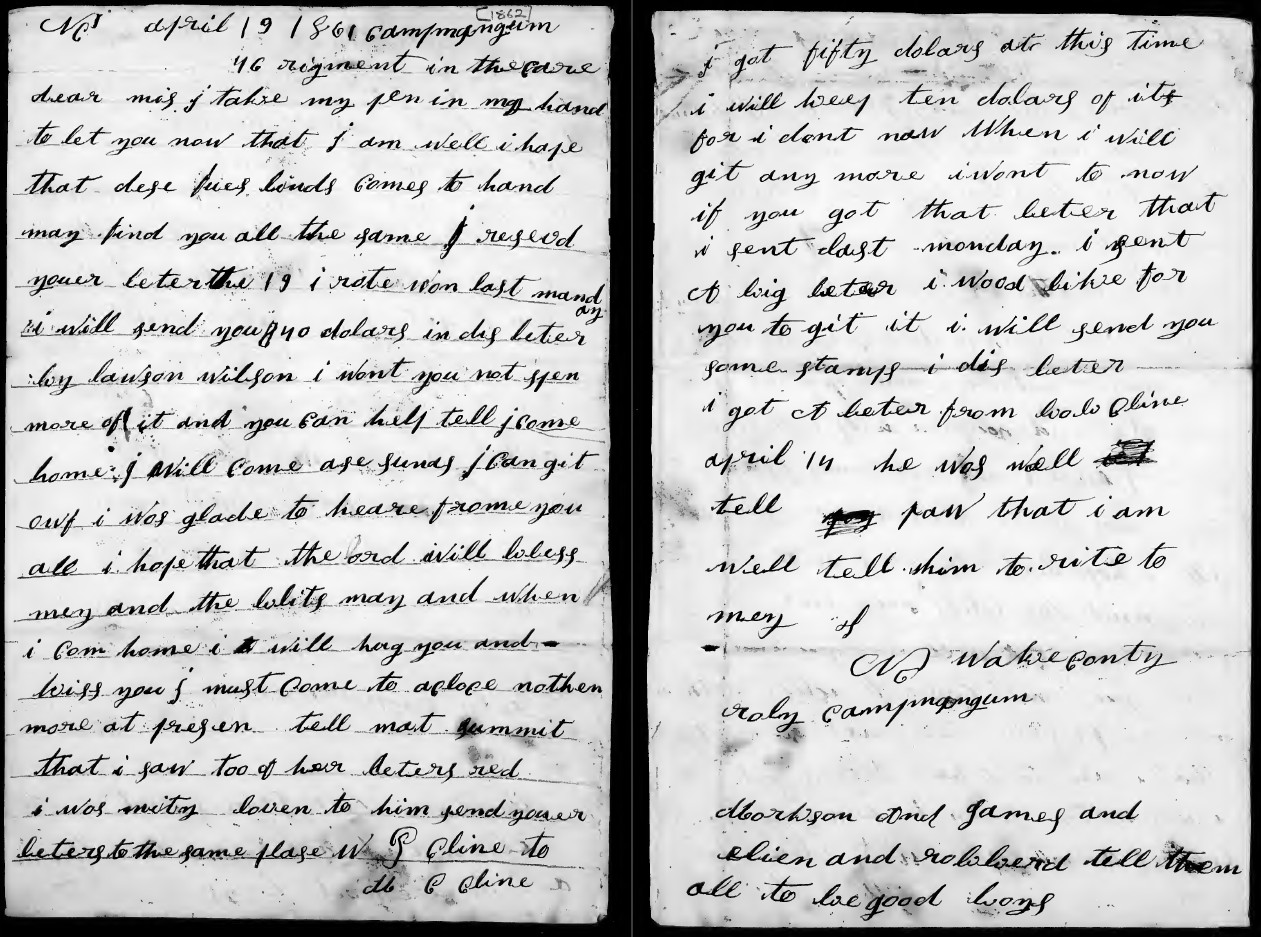 [1862]
NC april 19 1861 campmangum
46 rigment in the care
dear mis j take my pen in my hand
to let you now that j am well i hope
that dese fues linds comes to hand
may find you all the same j resevd
youer leter the 19 i rote won last mand
ay
i will send you 40 dolars in dis leter
by lawson wilson i wont you not spen
more of it and you can help tell j come
home j will come ase suns j can git
owf i wos glade to heare frome you
all i hope that the lord will bless
mey and the blits may and when
i com home i will hug you and
kiss you j must come to aclose nothen
more at presen tell mat summit
that i saw too of her leters red
i wos mity loven to him send youer
leters to the same plase W P Cline to
M C Cline
i got fifty dolars at this time
i will keep ten dolars of it
for i dont now when i will
git any more i wont to now
if you got that leter that
i sent last monday. i sent
A big leter i wood like for
you to git it i will send you
some stamps i dis leter
i got A leter from bob Cline
april 14 he wos well
tell paw that i am
well tell him to rite to
mey
NC wake conty
roly campmangum
Markson And James and
elien and robberd tell them
all to be good boys